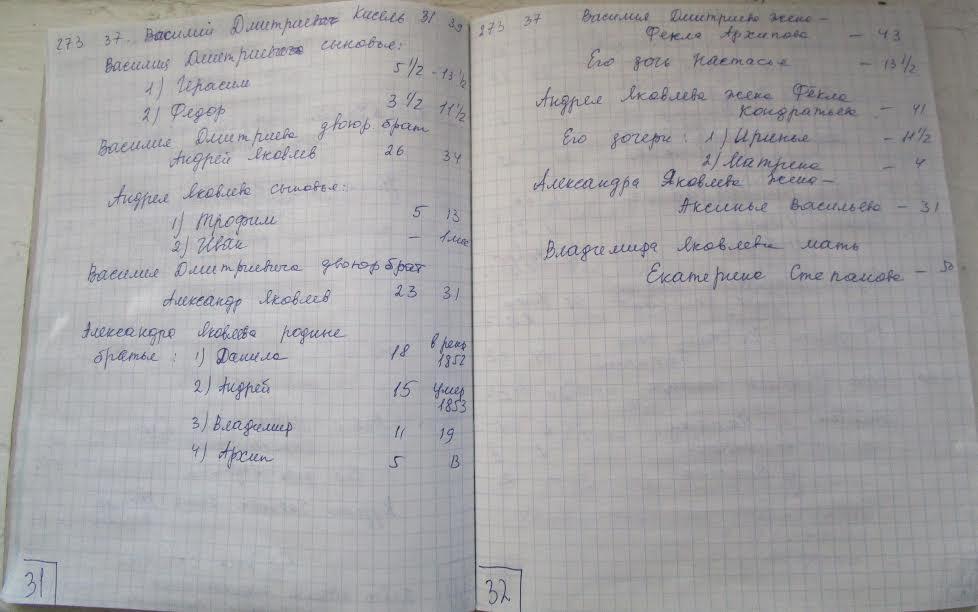 273 37. Василий Дмитриевич Кисель 31 39
Василия Дмитриевича сыновья:
1) Герасим 5 1/2 - 13 1/2
2) Федор 3 1/2 11 1/2
Василия Дмитриева двоюр брат
Андрей Яковлев 26 34
Андрея Яковлева сыновья:
1) Трофим 5 13
2) Иван — 1 мес
Василия Дмитриевича двоюр брат
Александр Яковлев 23 31
Александра Яковлева родные
братья: 1) Данила 18 в рекр 1852
2) Андрей 15 умер 1853
3) Владимир 11 19
4) Архип 5 В
31
273 37 Василия Дмитриева жена —
Фекла Архипова — 43
Его дочь Настасья — 13 1/2
Андрея Яковлева жена Фекла
Кондратьева — 41
Его дочери: 1) Иринья — 11 1/2
2) Матрена — 4
Александра Яковлева жена —
Аксинья Васильева — 31
Владимира Яковлева мать
Екатерина Степанова — 50
32